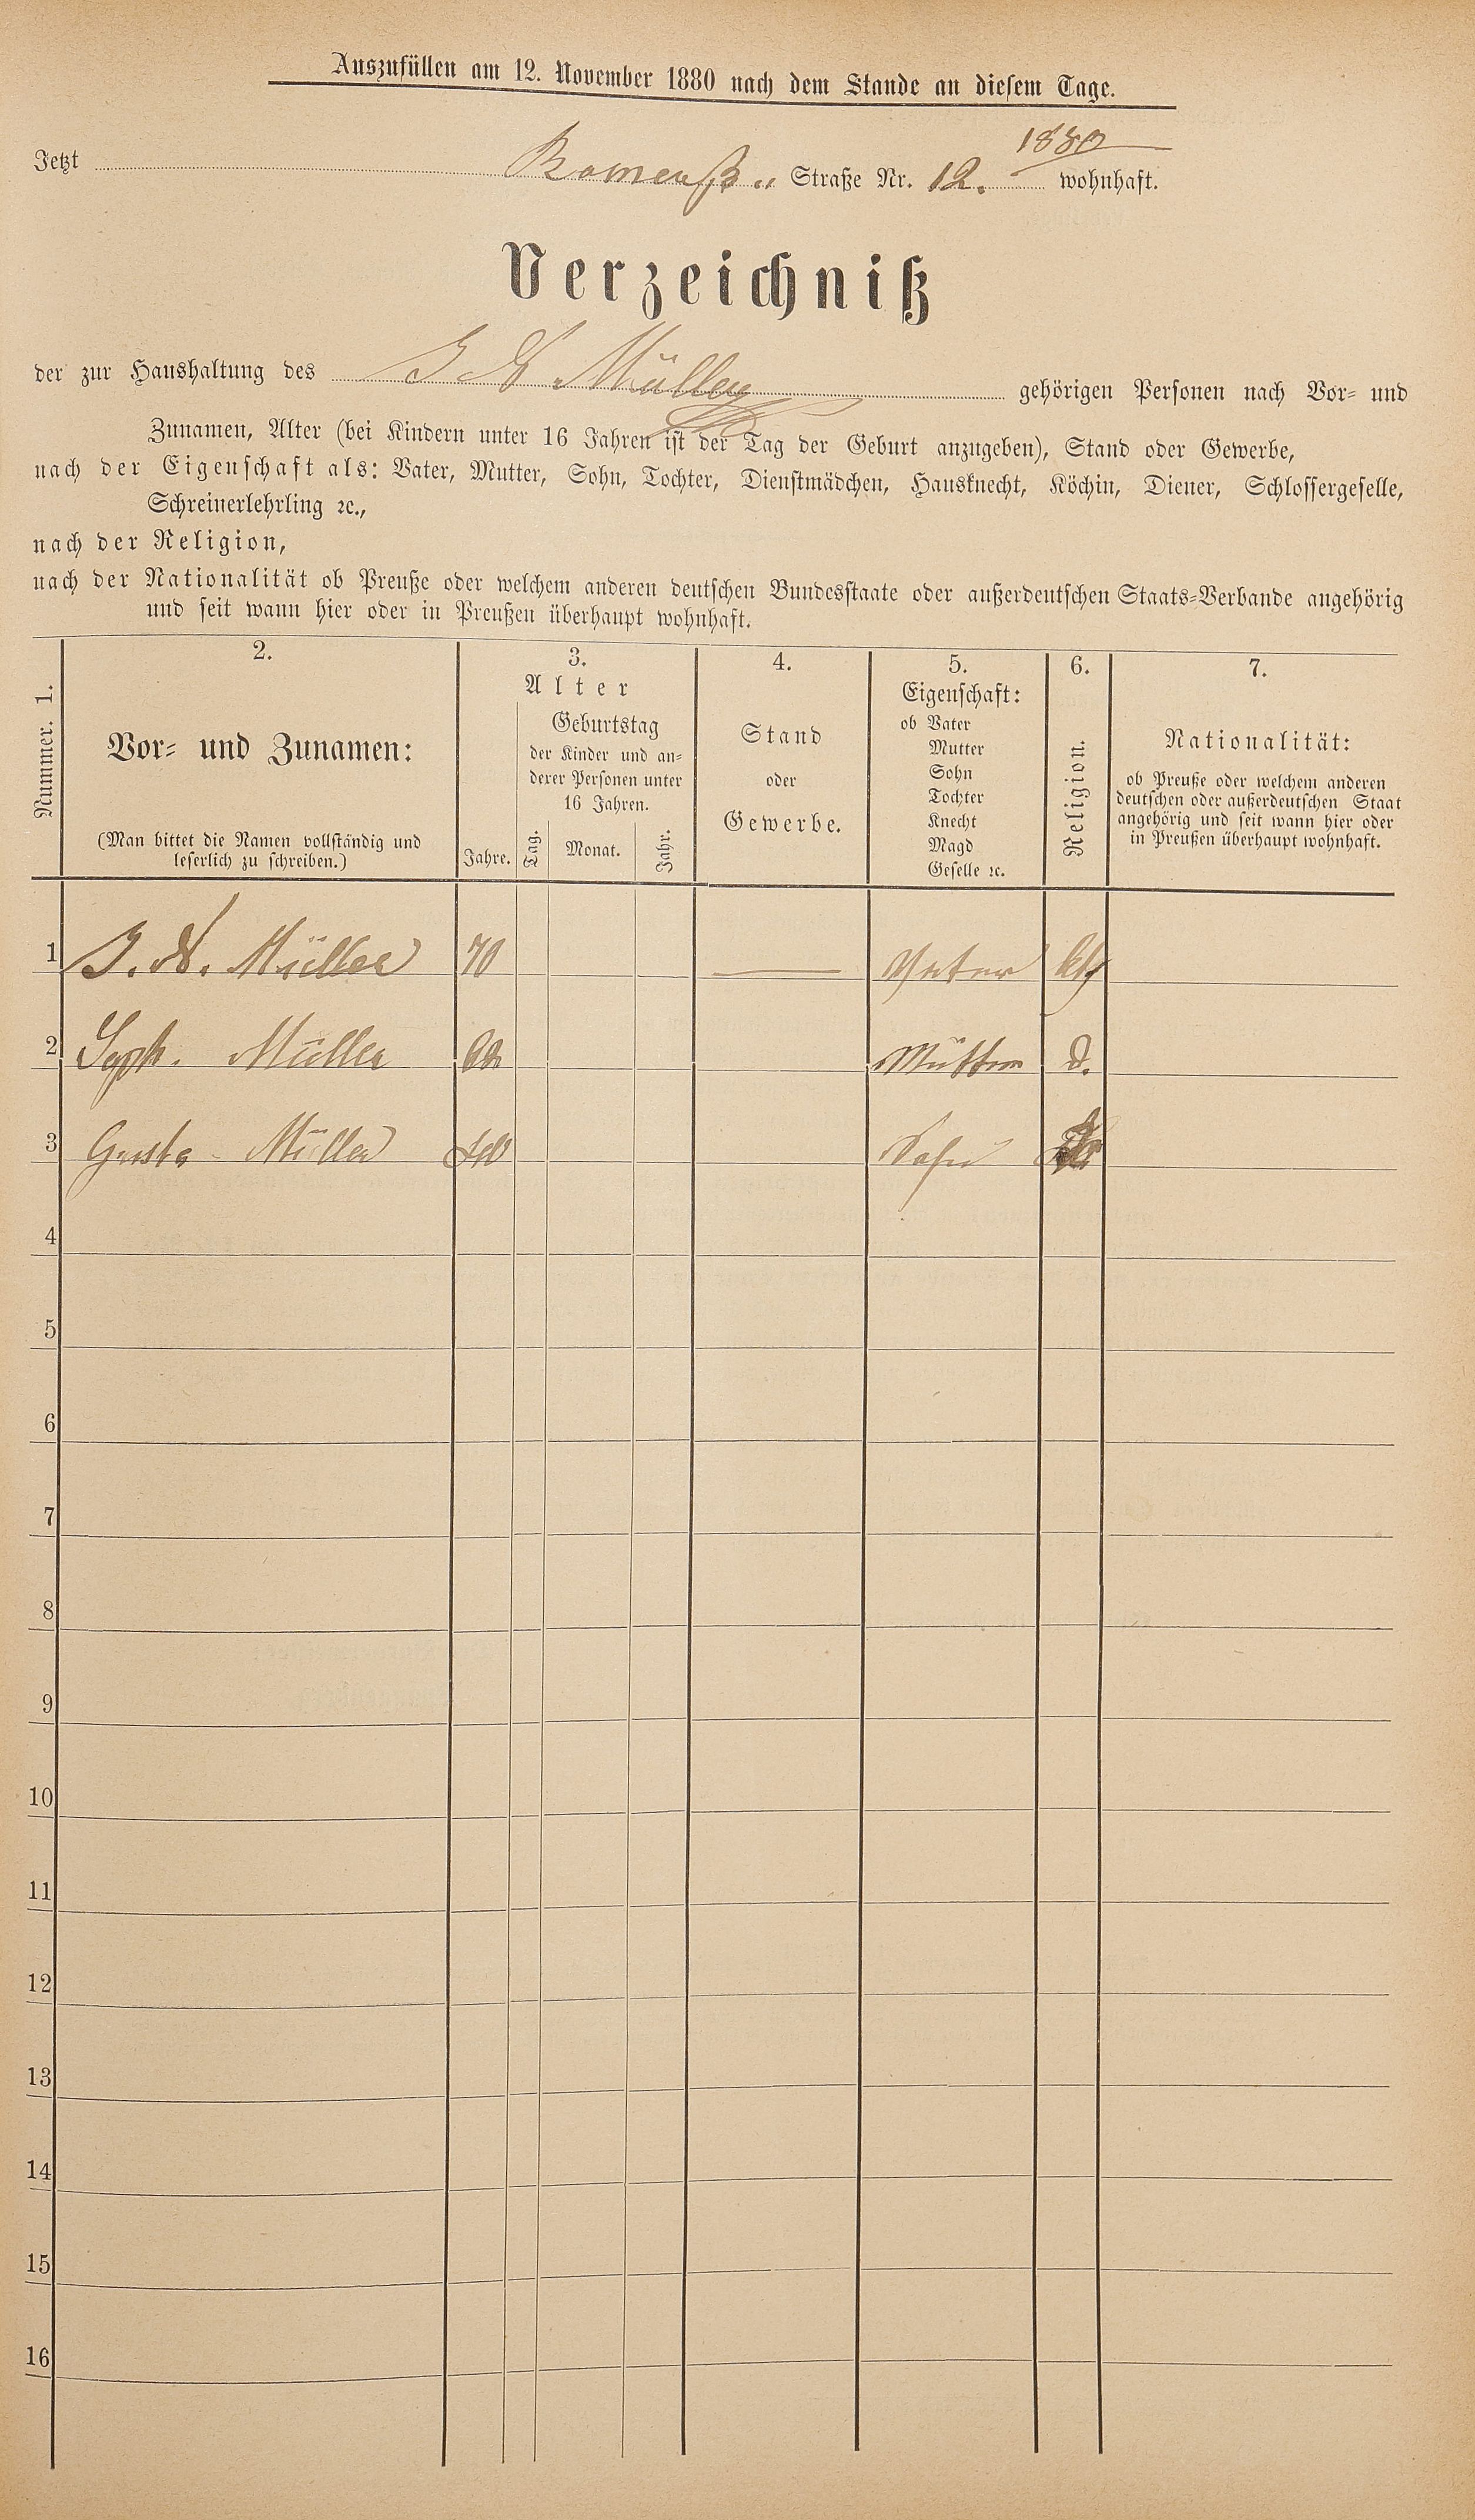 Auszufüllen am 12. November 1880 nach dem Stande an diesem Tage.
1880
Jetzt Straße Nr. 12. wohnhaft.
Verzeichniß
der zur Haushaltung des J A Müller gehörigen Personen nach Vor- und
Zunamen, Alter (bei Kindern unter 16 Jahren ist der Tag der Geburt anzugeben), Stand oder Gewerbe,
nach der Eigenschaft als: Vater, Mutter, Sohn, Tochter, Dienstmädchen, Hausknecht, Köchin, Diener, Schlossergeselle,
Schreinerlehrling ꝛc.,
nach der Religion,
nach der Nationalität ob Preuße oder welchem anderen deutschen Bundesstaate oder außerdeutschen Staats-Verbande angehörig
und seit wann hier oder in Preußen überhaupt wohnhaft.
Nummer. 1.
2.
Vor- und Zunamen:
(Man bittet die Namen vollständig und
leserlich zu schreiben.)
3.
Alter
Jahre.
Geburtstag
der Kinder und an-
derer Personen unter
16 Jahren.
Tag. Monat. Jahr.
4.
Stand
oder
Gewerbe.
5.
Eigenschaft:
ob Vater
Mutter
Sohn
Tochter
Knecht
Magd
Geselle ꝛc.
6.
Religion.
7.
Nationalität:
ob Preuße oder welchem anderen
deutschen oder außerdeutschen Staat
angehörig und seit wann hier oder
in Preußen überhaupt wohnhaft.
1 J. A. Müller 70 Vater
2 Soph. Müller Mutter d.
3 Gusta Müller Sohn
4
5
6
7
8
9
10
11
12
13
14
15
16